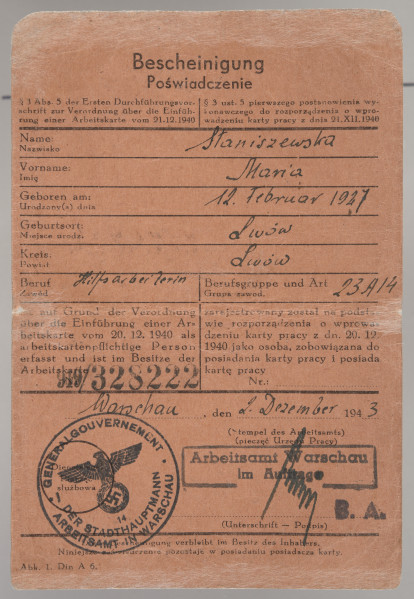 Bescheinigung
Poświadczenie
§ 3 Abs. 5 der Ersten Durchführungsvor-
schrift zur Verordnung über die Einfüh-
rung einer Arbeitskarte vom 21.12.1940
§ 3 ust. 5 pierwszego postanowienia wy-
konawczego do rozporządzenia o wpro-
wadzeniu karty pracy z dnia 21.XII.1940
Name: Staniszewska
Nazwisko
Vorname: Maria
Imię
Geboren am: 12. Februar 1927
Urodzony(a) dnia
Geburtsort: Lwów
Miejsce urodz.
Kreis: Lwów
Powiat
Beruf Hilfsarbeiterin
Zawód
Berufsgruppe und Art 23A14
Grupa zawod.
auf Grund der Verordnung
über die Einführung einer Ar-
beitskarte vom 20. 12. 1940 als
arbeitskartenpflichtige Person
erfasst und ist im Besitze der
Arbeitskarte
328222
zarejestrowany został na podsta-
wie rozporządzenia o wprowa-
dzeniu karty pracy z dn. 20. 12.
1940 jako osoba, zobowiązana do
posiadania karty pracy i posiada
kartę pracy
Nr.:
Warschau, den 2. Dezember 1943
(Stempel des Arbeitsamts)
(pieczęć Urzędu Pracy)
GENERALGOUVERNEMENT
DER STADTHAUPTMANN
ARBEITSAMT IN WARSCHAU
14
służbowa
Arbeitsamt Warschau
im Auftrage
B. A.
(Unterschrift — Podpis)
verbleibt im Besitz des Inhabers.
Niniejsze pozostaje w posiadaniu posiadacza karty.
Abk. 1. Din A 6.